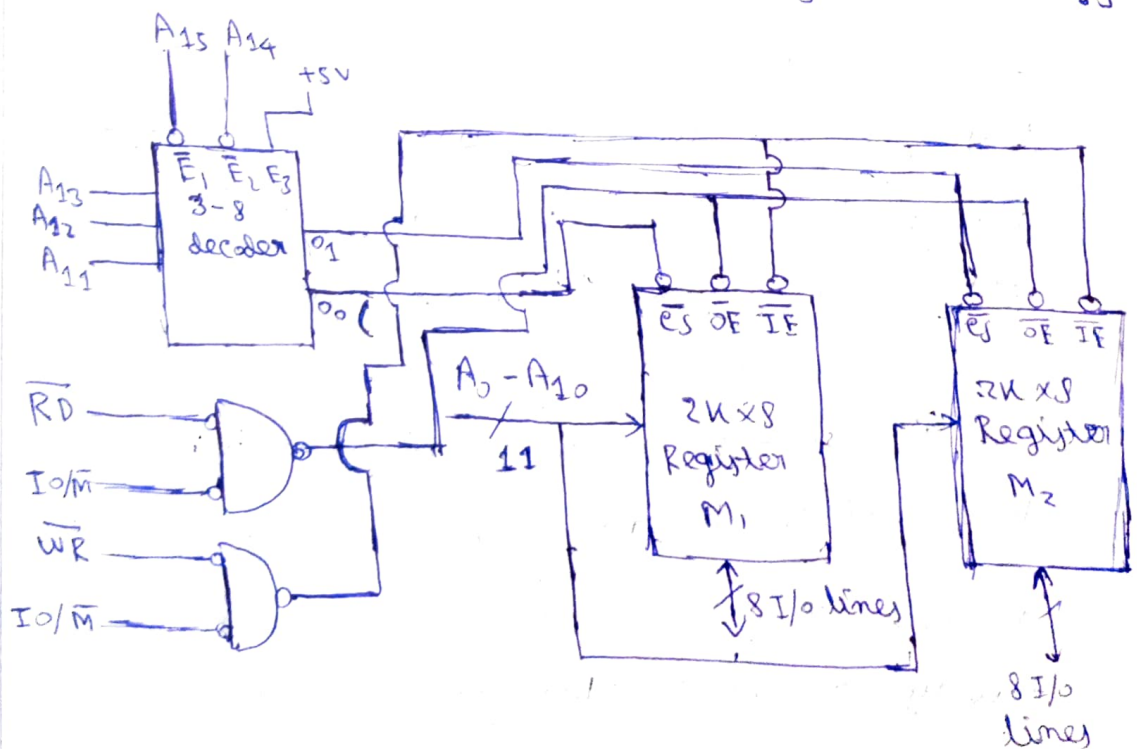 A15 A14
+5V
E̅1 E̅2 E3
3-8
decoder
A13
A12
A11
O1
O0
R̅D̅
IO/M̅
W̅R̅
IO/M̅
A0 - A10
11
C̅S̅ O̅E̅ I̅E̅
2K x 8
Register
M1
8 I/O lines
C̅S̅ O̅E̅ I̅E̅
2K x 8
Register
M2
8 I/O
lines